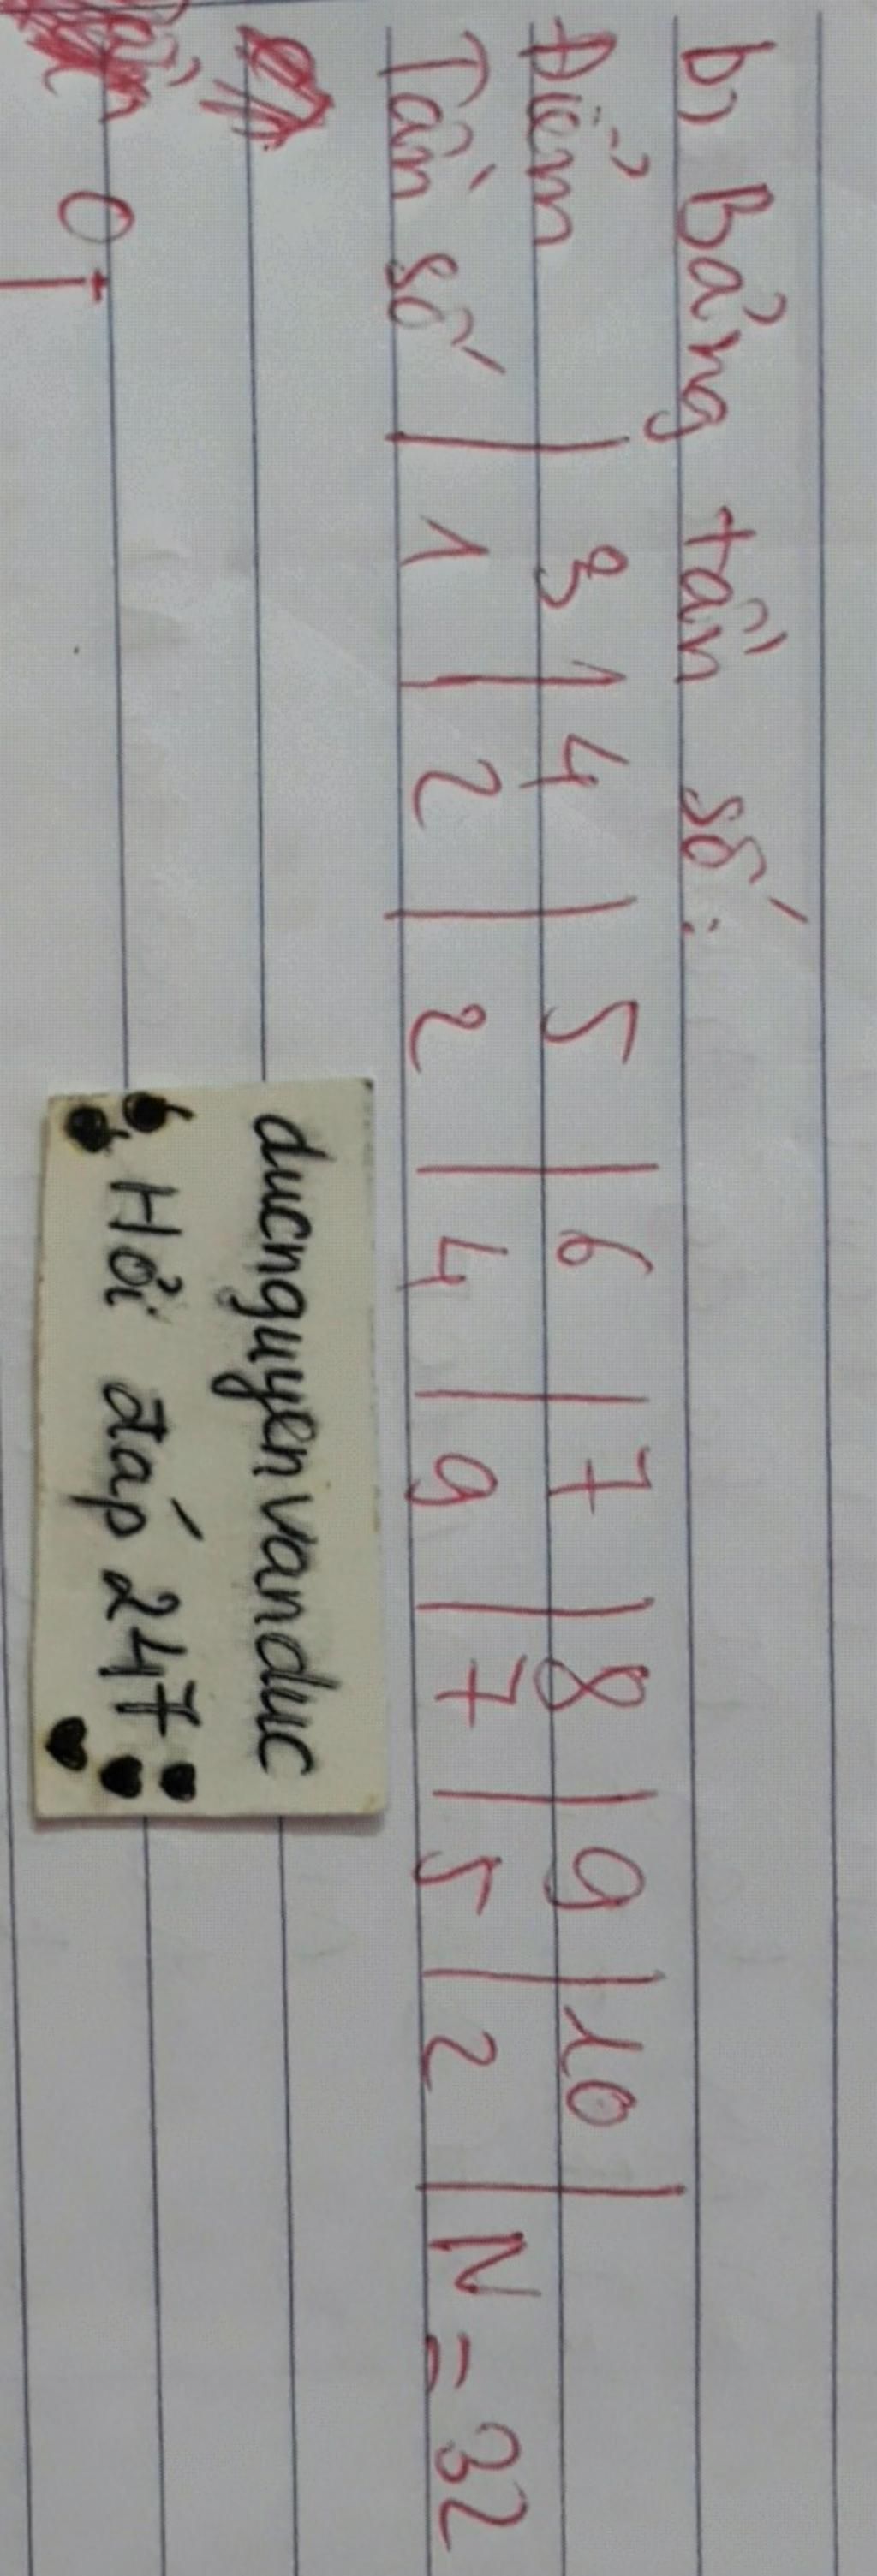 b, Bảng tần số:
Điểm | 3 | 4 | 5 | 6 | 7 | 8 | 9 | 10 |
Tần số | 1 | 2 | 2 | 4 | 9 | 7 | 5 | 2 | N = 32
ducnguyenvanduc
Hỏi đáp 247
0